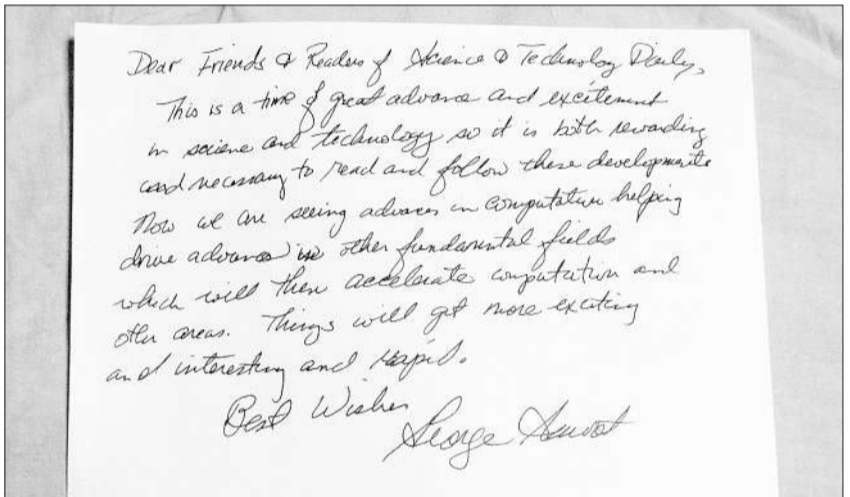 Dear Friends & Readers of Science & Technology Daily,
This is a time of great advance and excitement
in science and technology so it is both rewarding
and necessary to read and follow these developments
Now we are seeing advances in computation helping
drive advances in other fundamental fields
which will then accelerate computation and
other areas. Things will get more exciting
and interesting and rapid.
Best Wishes
George Smoot